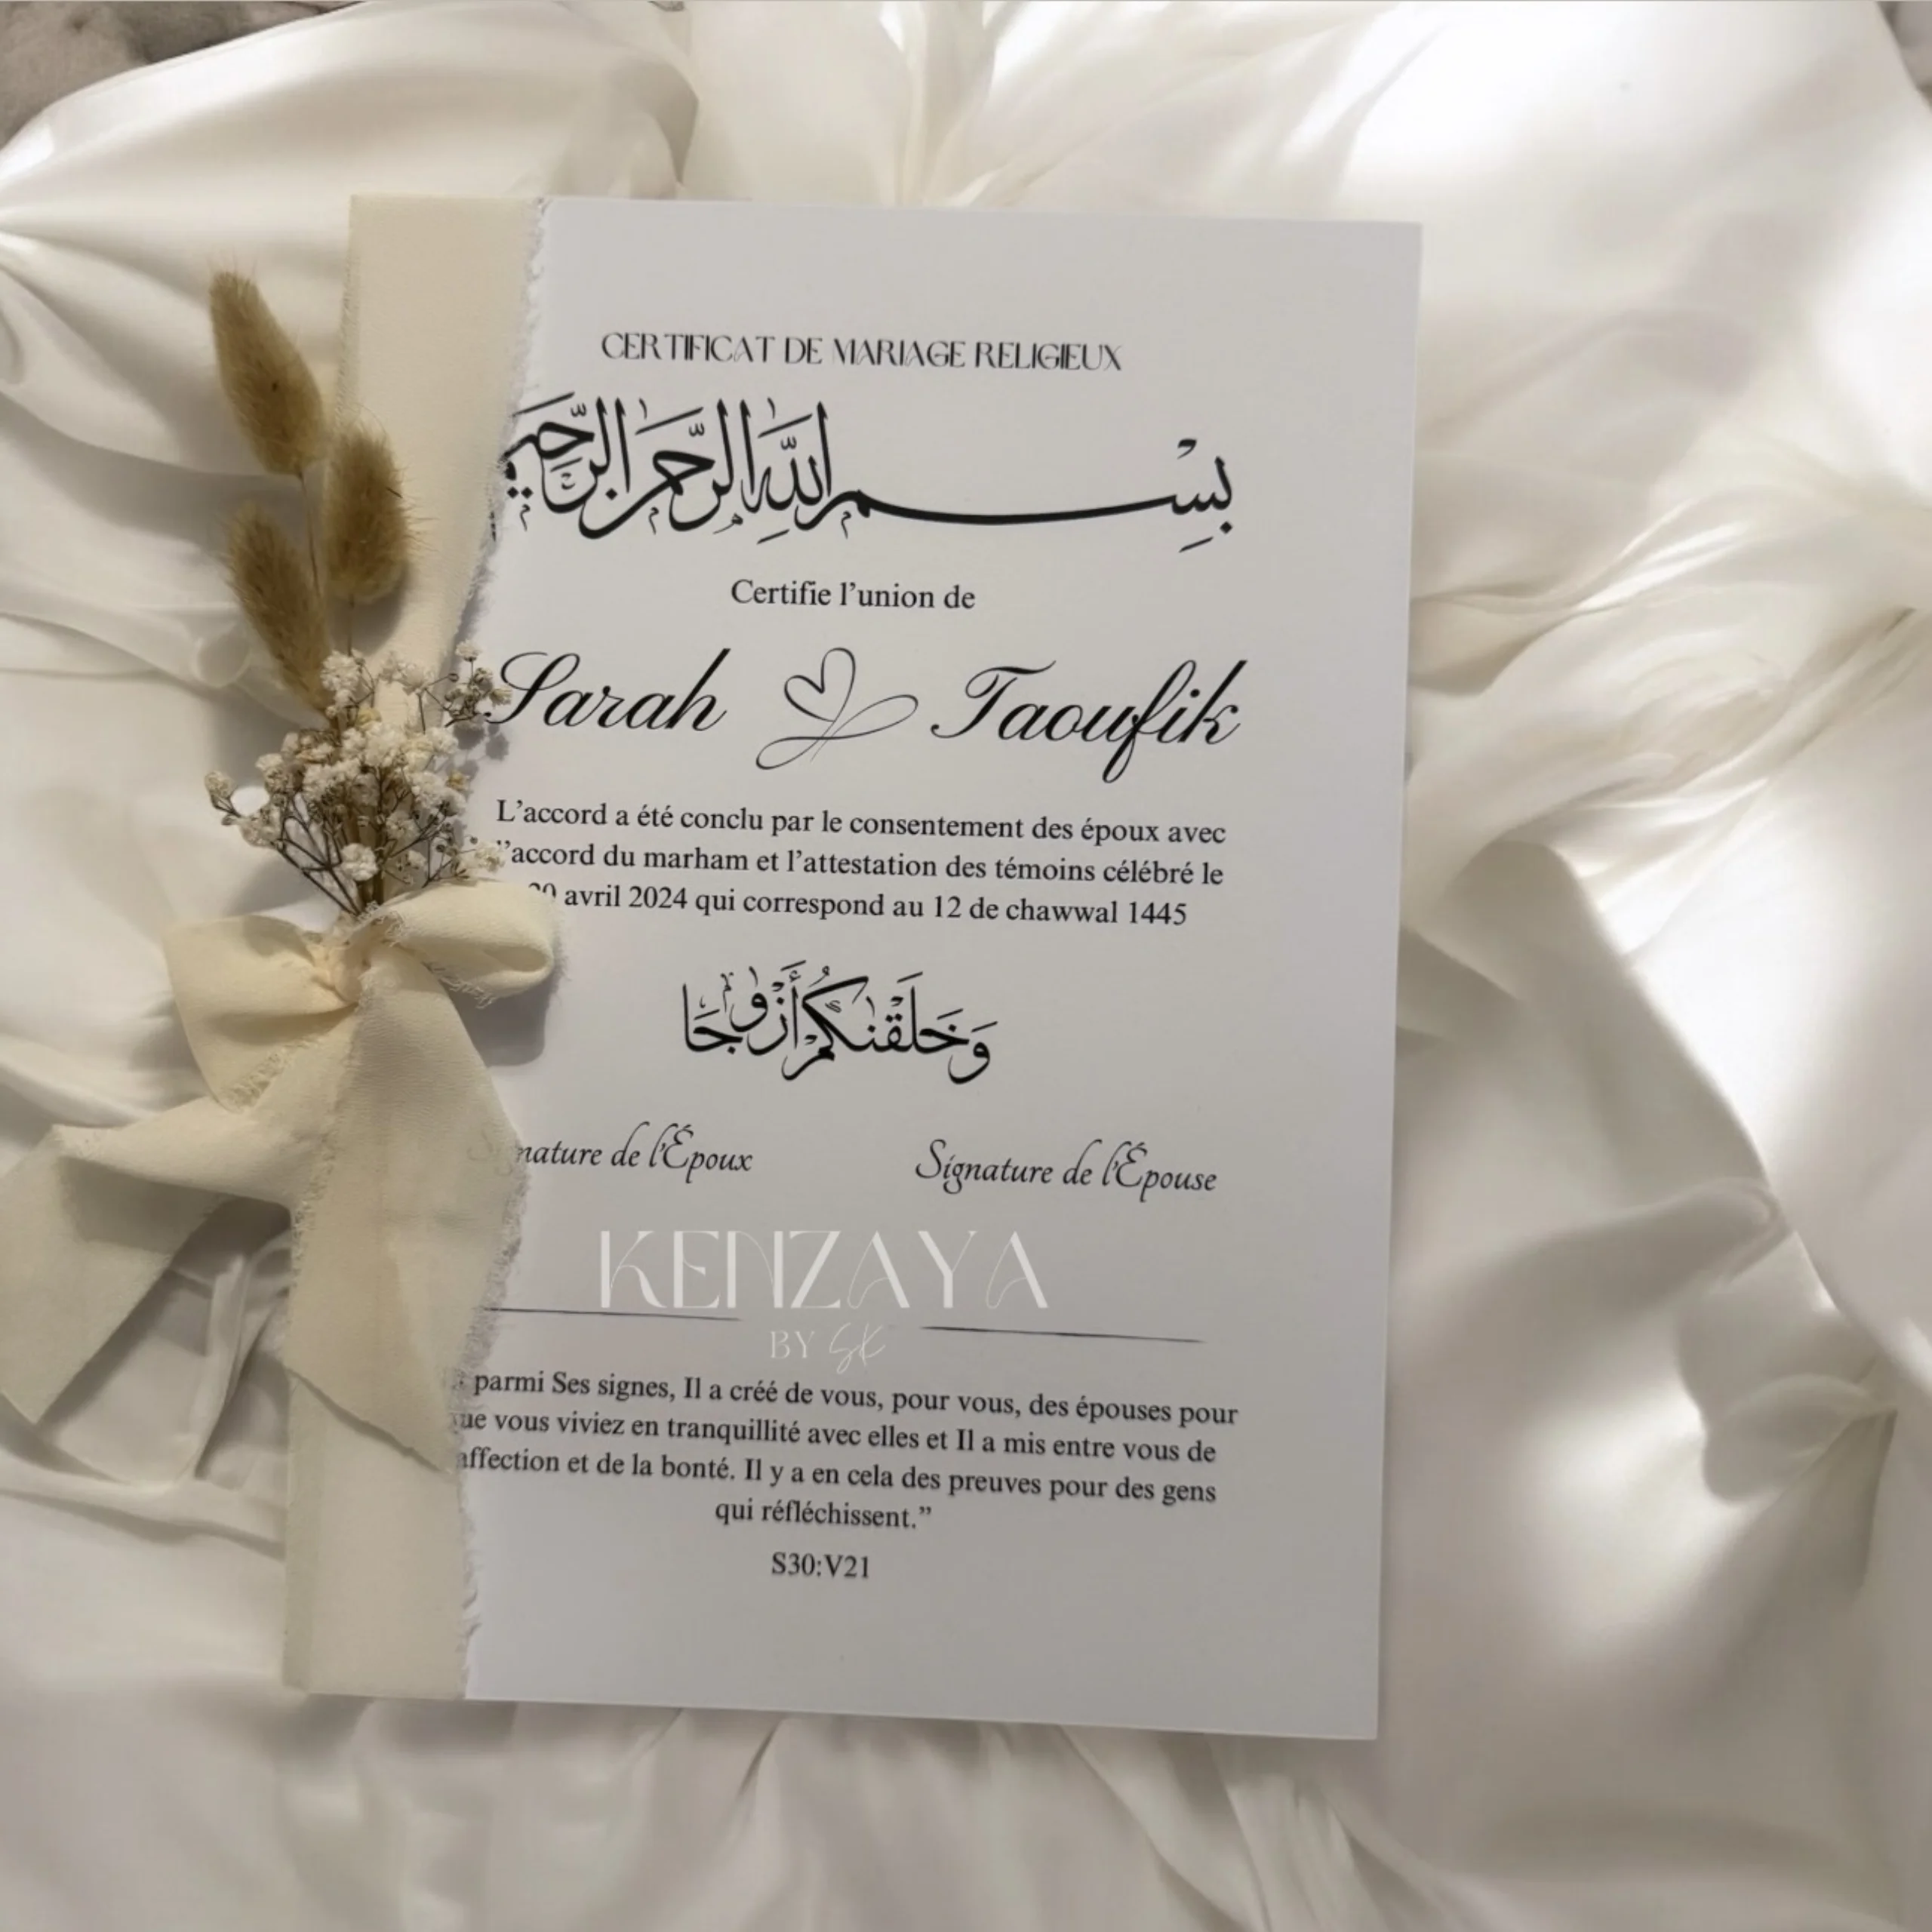 CERTIFICAT DE MARIAGE RELIGIEUX
بِسْمِ اللَّهِ الرَّحْمَٰنِ الرَّحِيمِ
Certifie l’union de
Sarah Taoufik
L’accord a été conclu par le consentement des époux avec
l’accord du marham et l’attestation des témoins célébré le
avril 2024 qui correspond au 12 de chawwal 1445
وَخَلَقْنَٰكُمْ أَزْوَٰجًا
Signature de l’Époux Signature de l’Épouse
KENZAYA
BY SK
parmi Ses signes, Il a créé de vous, pour vous, des épouses pour
que vous viviez en tranquillité avec elles et Il a mis entre vous de
affection et de la bonté. Il y a en cela des preuves pour des gens
qui réfléchissent.”
S30:V21